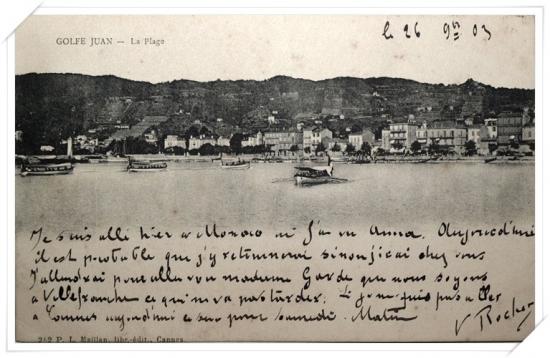 GOLFE JUAN — La Plage
le 26 9bre 03
Je suis allé hier à Monaco où j'ai vu Anna. Aujourd'hui
il est probable que j'y retournerai sinon j'irai chez vous
J'attendrai pour aller voir madame Garde que nous soyons
à Villefranche ce qui ne va pas tarder. Si je ne puis pas aller
à Cannes aujourd'hui ce sera pour samedi. Matin
V Rocher
242 P. L. Maillan, libr.-édit., Cannes.